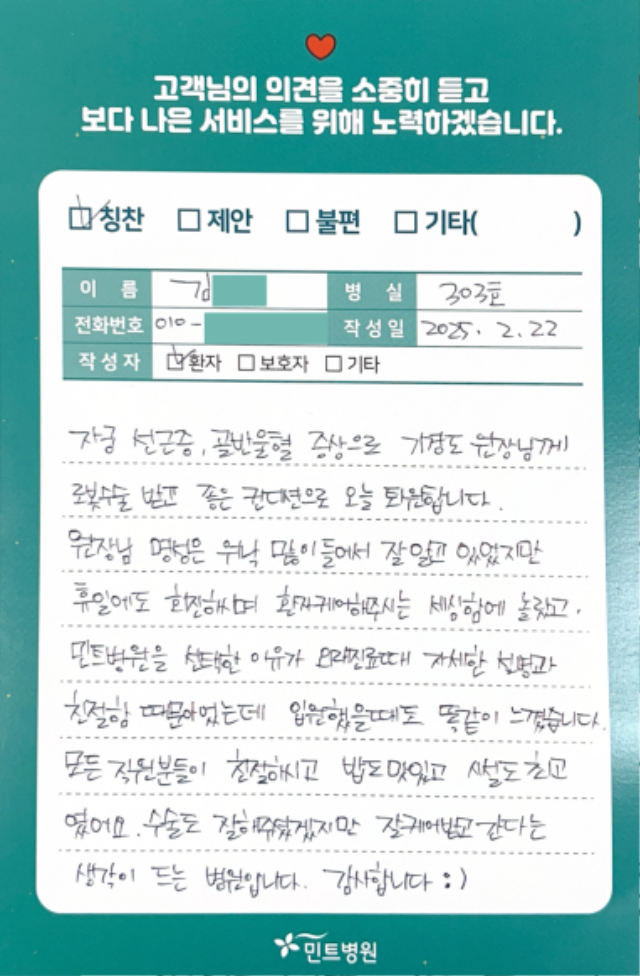 고객님의 의견을 소중히 듣고
보다 나은 서비스를 위해 노력하겠습니다.
칭찬 제안 불편 기타( )
이 름 김 병 실 303호
전화번호 010- 작성일 2025. 2. 22
작성자 환자 보호자 기타
자궁 선근증, 골반울혈 증상으로 기경도 원장님께
로봇수술 받고 좋은 컨디션으로 오늘 퇴원합니다.
원장님 명성은 워낙 많이 들어서 잘 알고 있었지만
휴일에도 회진하시며 환자케어해주시는 세심함에 놀랐고.
민트병원을 선택한 이유가 외래진료때 자세한 설명과
친절함 때문이었는데 입원했을때도 똑같이 느꼈습니다.
모든 직원분들이 친절하시고 밥도 맛있고 시설도 최고
였어요. 수술도 잘해주셨겠지만 잘케어받고 간다는
생각이 드는 병원입니다. 감사합니다 :)
민트병원